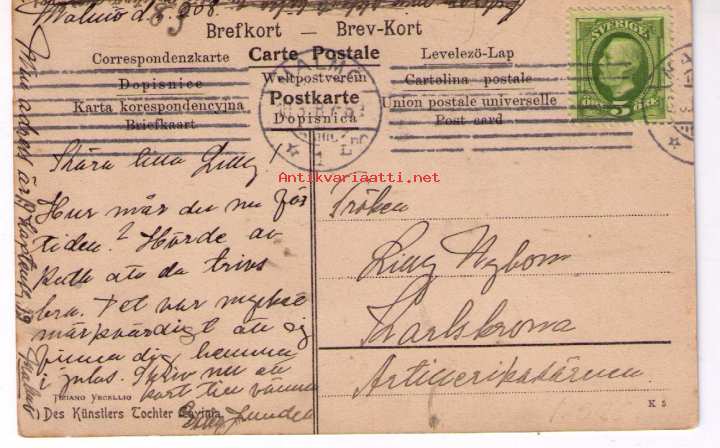 Malmö d. 8/3 1908.
Brefkort — Brev-Kort
Correspondenzkarte Carte Postale Levelezö-Lap
Dopisnice Weltpostverein Cartolina postale
Karta korespondencyjna Postkarte Union postale universelle
Briefkaart Dopisnica Post card
SVERIGE
ÖRE 5 ÖRE
Antikvariaatti.net
Kära lilla Lilly!
Hur mår du nu för
tiden? Hörde av
Putte att du trivs
bra. Det var mycket
märkvärdigt att ej
finna dig hemma
i julas. Skriv nu ett
kort till vännen
Fröken
Lilly Nybom
Karlskrona
Artillerikasärnen
Min adress är
TIZIANO VECELLIO
Des Künstlers Tochter Lavinia.
K 5